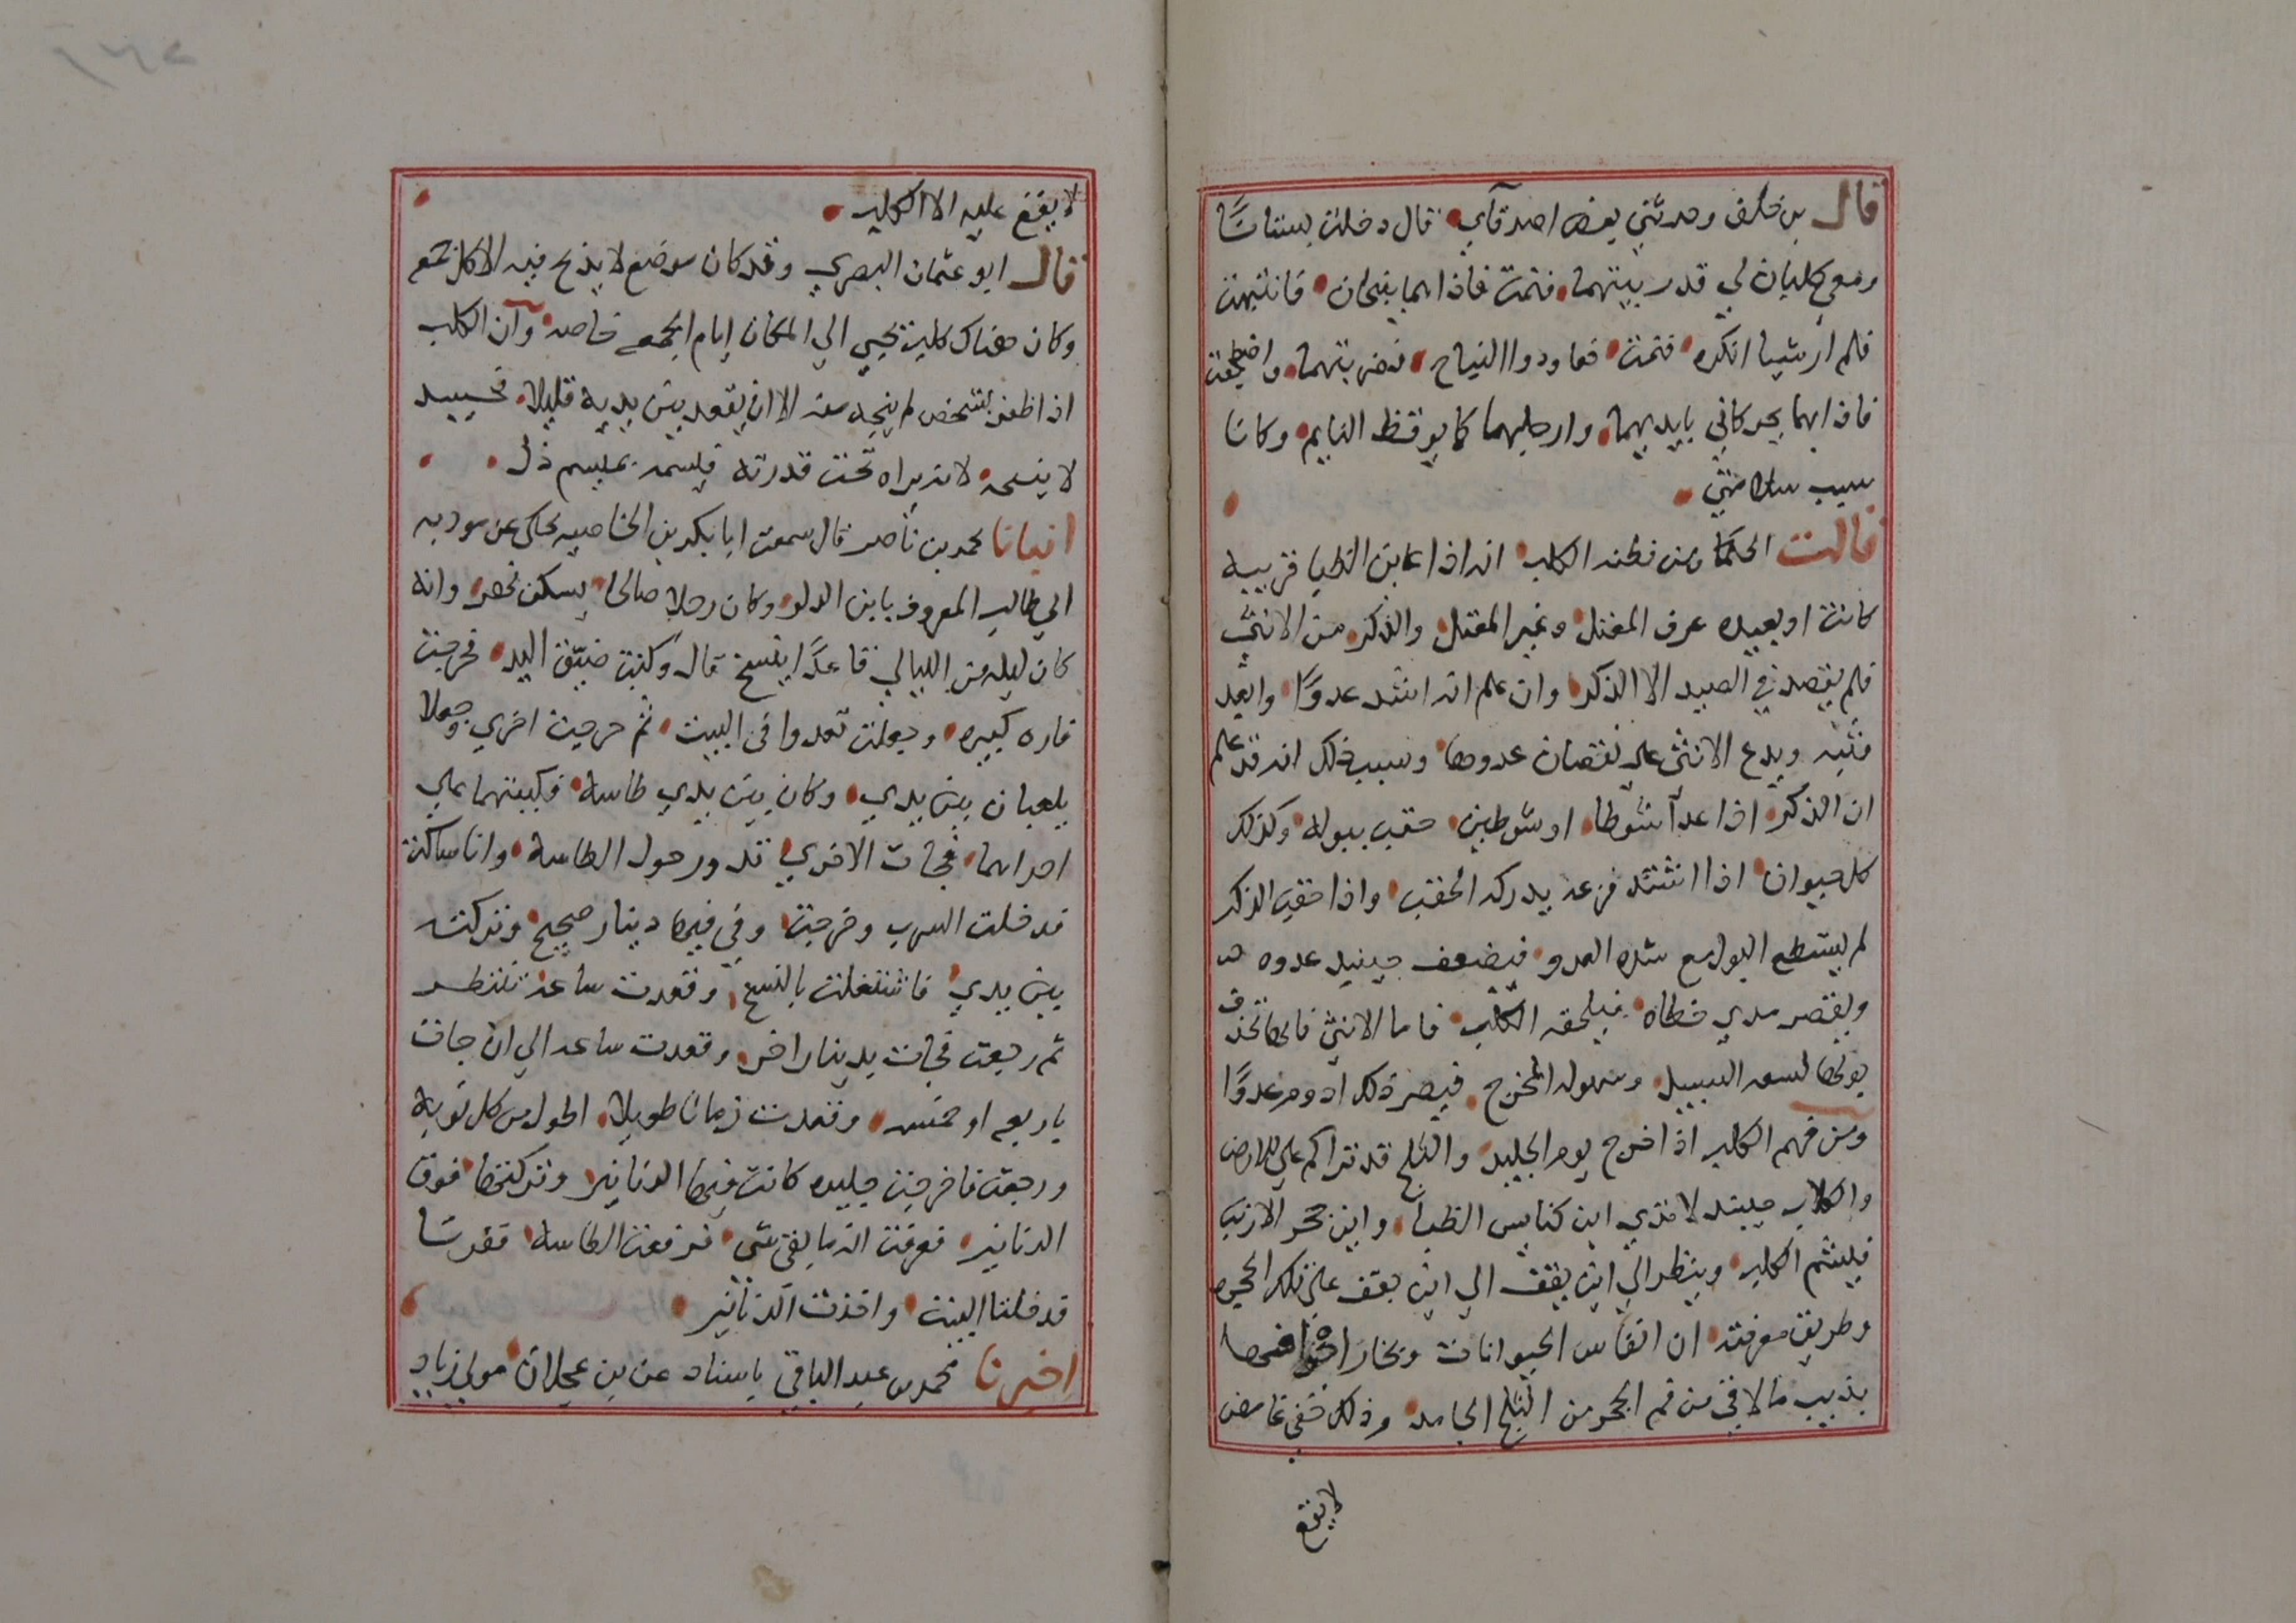 قال بن خلف وحدثني بعض اصدقآي قال دخلت بستانًا
ومعي كلبان لي قد ربيتهما فنمت فاذا هما ينبحان فانتبهت
فلم ار شيا انكره فنمت فعاودوا النباح فضربتهما واضطجعت
فاذا بهما يحركاني بايديهما وارجلهما كما يوقظ النايم وكانا
سبب سلامتي
قالت الحكما ومن فطنه الكلب انه اذا عاين الظبا قريبه
كانت او بعيده عرف المعتل وغير المعتل والذكر من الانثي
فلم يقصد في الصيد الا الذكر وان علم انه اشد عدوًا وابعد
وثبه ويدع الانثي علي نقصان عدوها وسبب ذلك انه قد علم
ان الذكر اذا عدا شوطا او شوطين حقب ببوله وكذلك
كل حيوان اذا اشتد فزعه يدركه الحقب واذا حقب الذكر
لم يستطع البول مع شده العدو فيضعف حينيد عدوه
ويقصر مدي خطاه فيلحقه الكلب فاما الانثي فانها تحذف
بولها لسعه السبيل وسهوله المخرج فيصير ذلك ادوم عدوًا
ومن فهم الكلب اذا خرج يوم الجليد والثلج قد تراكم علي الارض
والكلاب حينيد لا تدري اين كناس الظبا واين جحر الارنب
فيشم الكلب وينظر الي اين يقف الي اين يقف علي تلك الجحره
وطريق معرفته ان انفاس الحيوانات وبخار اجوافها
يذيب ما لاقي من فم الجحر من الثلج الجامد وذلك خفي غامض
لا يقع
لا يقع عليه الا الكلب
قال ابو عثمان البصري وقد كان موضع لا يذبح فيه الا كل جمعه
وكان هناك كلب يجيي الي المكان ايام الجمع خاصه وان الكلب
اذا ظفر بشخص لم ينجه منه الا ان يقعد بين يديه قليلا فحينيد
لا ينبحه لانه يراه تحت قدرته فيسمه بميسم ذل
انبانا محمد بن ناصر قال سمعت ابا بكر بن الخاصبه يحكي عن مودبه
ابي طالب المعروف بابن الدلو وكان رجلا صالحا يسكن نهر وانه
كان ليله من الليالي قاعدًا ينسخ قال وكنت ضيق اليد فخرجت
فاره كبيره وجعلت تعدوا في البيت ثم خرجت اخري وجعلا
يلعبان بين يدي وكان بين يدي طاسه فكببتها علي
احداهما فجات الاخري تدور حول الطاسه وانا ساكت
فدخلت السرب وخرجت وفي فيها دينار صحيح وتركته
بين يدي فاشتغلت بالنسخ وقعدت ساعه تنتظر
ثم رجعت فجات بدينار اخر وقعدت ساعه الي ان جات
باربعه او خمسه وقعدت زمانا طويلا اطول من كل نوبه
ورجعت فاخرجت جليده كانت فيها الدنانير وتركتها فوق
الدنانير فعرفت انه ما بقي شي فرفعت الطاسه فقفزتا
فدخلتا البيت واخذت الدنانير
اخبرنا محمد بن عبد الباقي باسناد عن بن عجلان مولي زياد